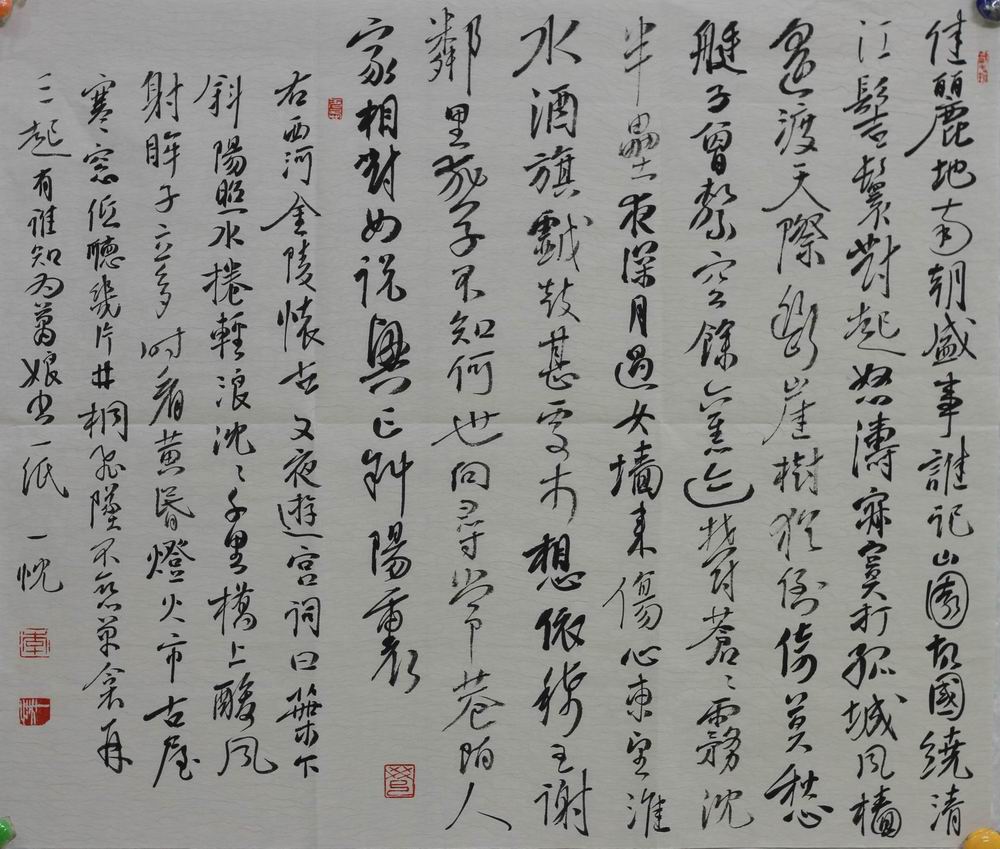 佳麗地南朝盛事誰記山圍故國繞清
江髻鬟對起怒濤寂寞打孤城風檣
遙渡天際斷崖樹猶倒倚莫愁
艇子曾繫空餘舊迹鬱蒼〻霧沈
半壘夜深月過女墻來傷心東望淮
水酒旗戲鼓甚處市想依稀王謝
鄰里燕子不知何世向尋常巷陌人
家相對如說興亡斜陽裏
右西河金陵懷古又夜遊宮詞曰葉下
斜陽照水捲輕浪沈〻千里橋上酸風
射眸子立多時看黃昏燈火市古屋
寒〻窓底聽幾片井桐飛墜不戀單衾再
三起有誰知為蕭娘書一紙 一忱